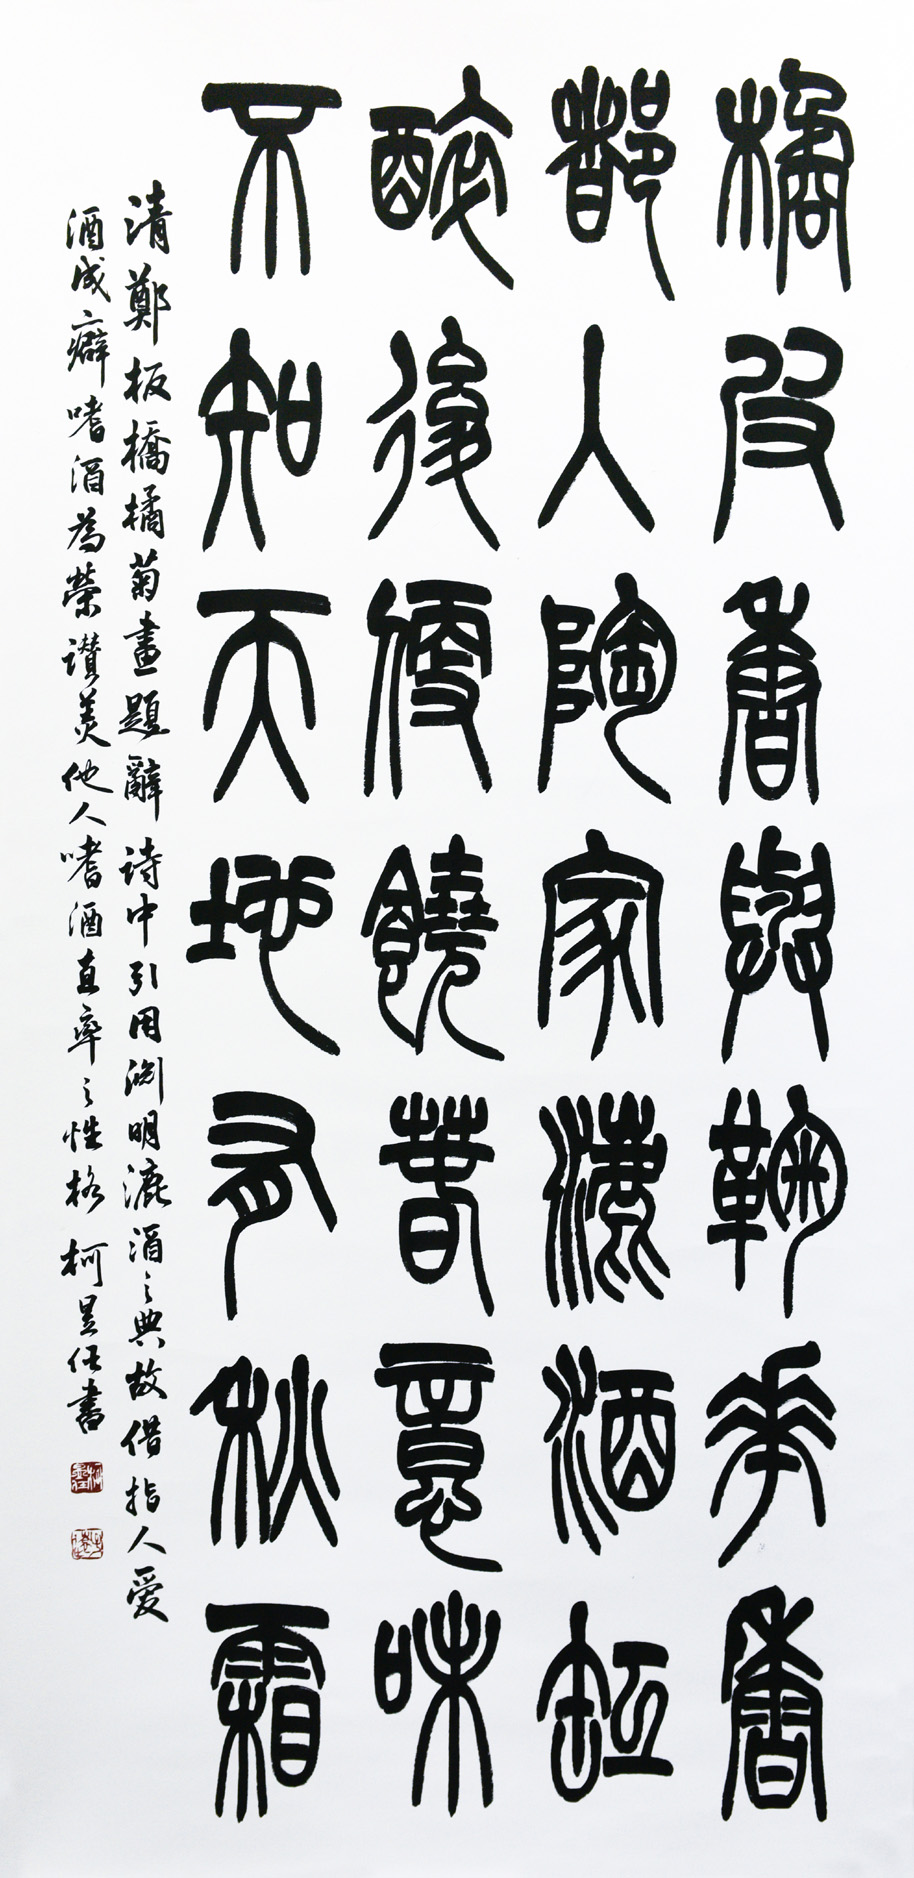 橘皮香與鞠華香
都入陶家漉酒缸
醉後便饒春意味
不知天地有秋霜
清鄭板橋橘菊畫題辭詩中引用渕明漉酒之典故借指人愛
酒成癖嗜酒為榮讚美他人嗜酒直率之性格 柯昱任書